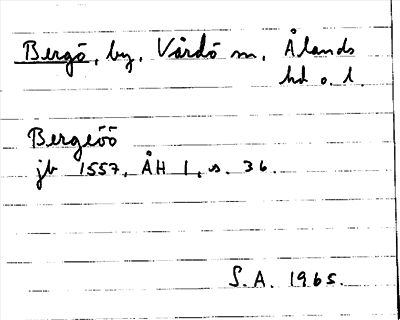 Bergö, by, Vårdö sn, Ålands
hd o. l.
Bergeöö
jb 1557, ÅH I, s. 36.
S. A. 1965.